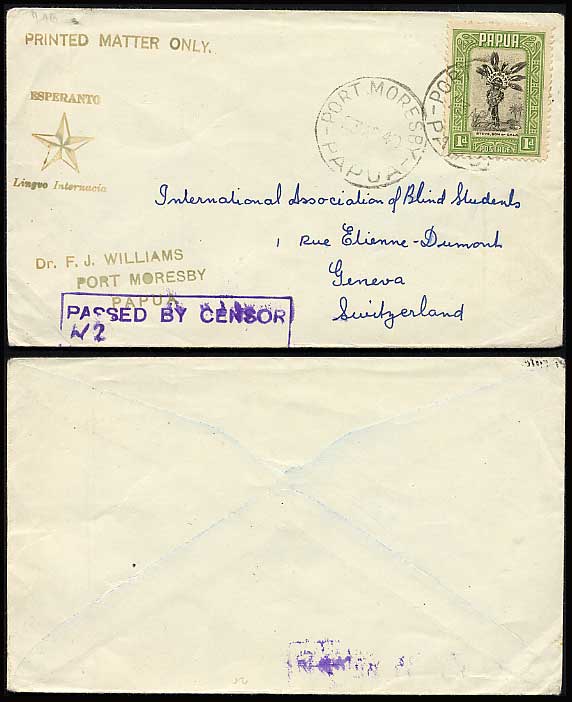 PRINTED MATTER ONLY.
ESPERANTO
Lingvo Internacia
PAPUA
STEVE, SON OF OALA
1d POSTAGE 1d
PORT MORESBY
PAPUA
PORT
International Association of Blind Students
1 Rue Etienne-Dumont
Geneva
Switzerland
Dr. F. J. WILLIAMS
PORT MORESBY
PAPUA
PASSED BY CENSOR